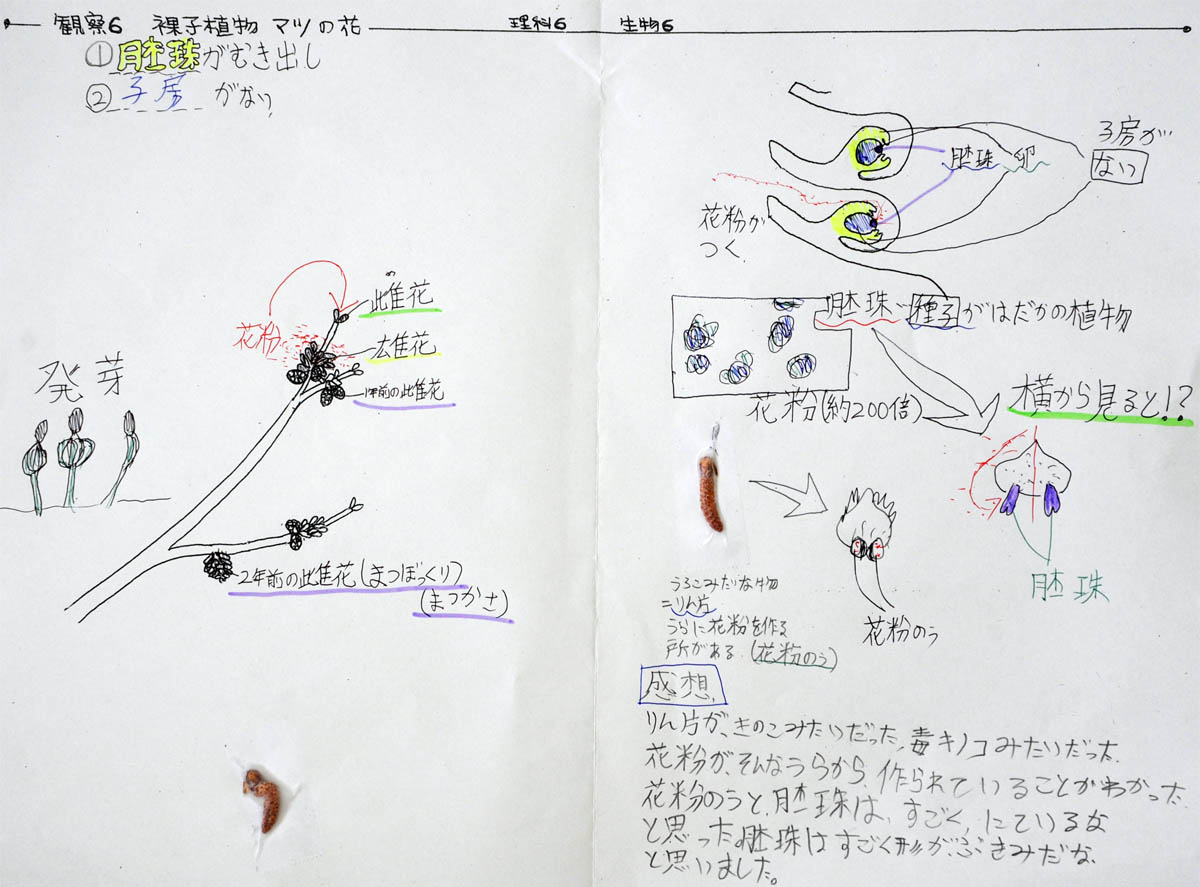 観察6 裸子植物 マツの花 理科6 生物6
① 胚珠がむき出し
② 子房 がない
花粉
雌花
雄花
1年前の雌花
発芽
2年前の雌花(まつぼっくり)
(まつかさ)
胚珠 卵
子房が
ない
花粉が
つく
胚珠、種子がはだかの植物
花粉(約200倍)
横から見ると!?
胚珠
花粉のう
うろこみたいな物
=りん片
うらに花粉を作る
所がある (花粉のう)
感想
りん片が、きのこみたいだった、毒キノコみたいだった。
花粉が、そんなうらから、作られていることがわかった。
花粉のうと、胚珠は、すごく、にているな
と思った。胚珠はすごく形が、ぶきみだな、
と思いました。